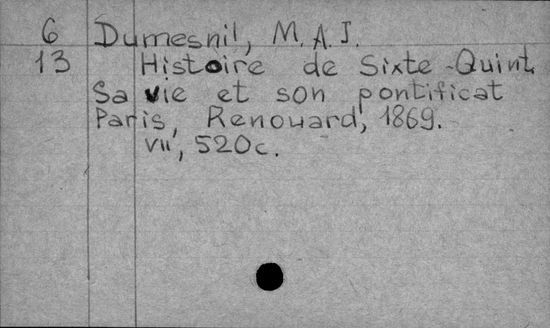 6 Dumesnil, M. A. J.
13 Histoire de Sixte-Quint.
Sa vie et son pontificat
Paris, Renouard, 1869.
VII, 520c.